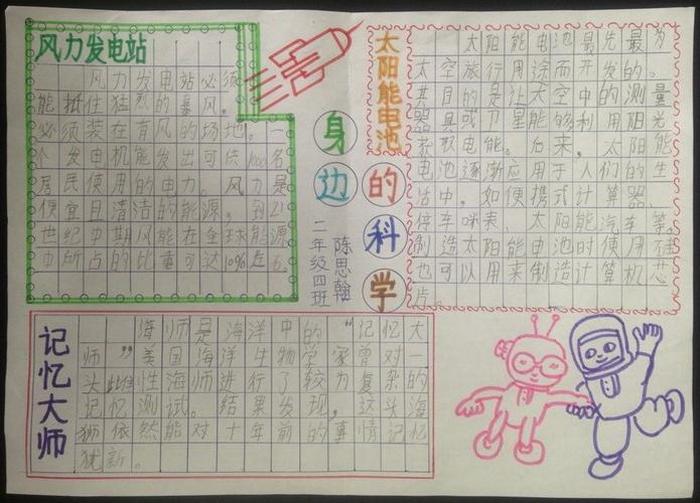 风力发电站
风力发电站必须
能抵住猛烈的暴风。
必须装在有风的场地。一
个发电机能发出可供1000名
居民使用的电力。风力是
便宜且清洁的能源，到21
世纪中期风能在全球能源
中所占的比重可达10%左右。
身边的科学
二年级四班
陈思翰
太阳能电池
太阳能电池最先是为
太空旅行用途而开发的。
其目的是让太空中的测量
器具或卫星能够利用阳光
获取电能。后来，太阳能
电池逐渐应用于人们的生
活中。如便携式计算器、
停车咪表、太阳能汽车等。
制造太阳能电池时使用硅
也可以用来制造计算机芯
片。
记忆大师
海师是海洋中的“记忆大
师”美国海洋生物学家曾对一
头雌性海师进行了较为复杂的
记忆测试。结果发现，这头海
狮依然能对十年前的事情记忆
犹新。